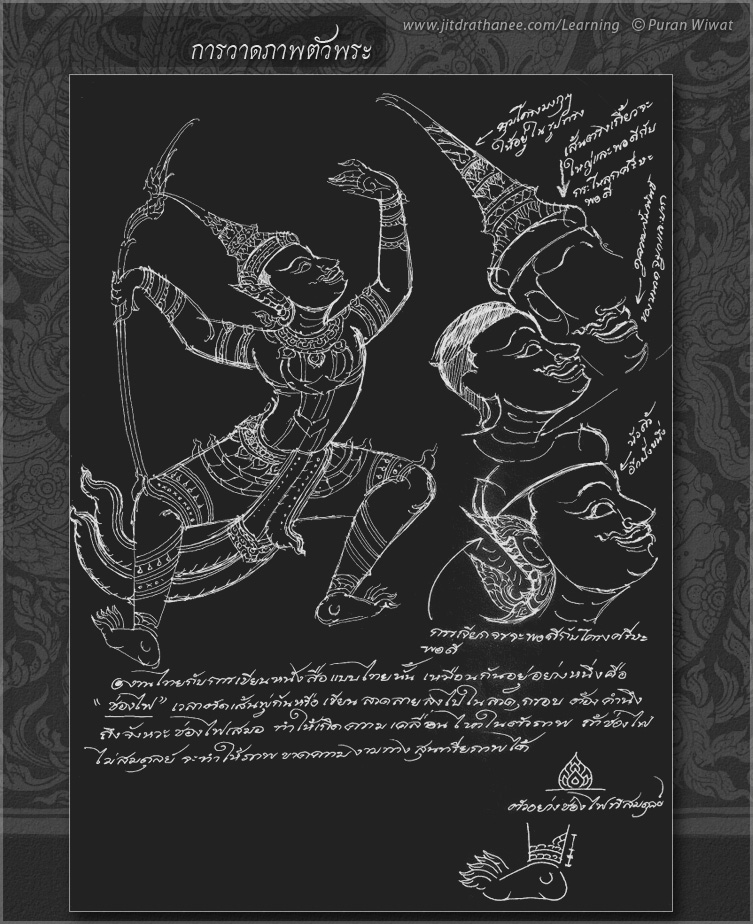 www.jitdrathanee.com/Learning © Puran Wiwat
การวาดภาพตัวพระ
ให้อยู่ในรูปทรง
เส้นตรงเกี้ยวจะ
ใหญ่และพอดีกับ
กระโหลกศรีษะ
พอดี
การเขียน จรจะพอดีกับโครงศรีษะ
พอดี
งานไทยกับการเขียนหนังสือแบบไทยนั้น เหมือนกันอยู่อย่างหนึ่งคือ
"ช่องไฟ" เวลาตัดเส้นคู่กันหรือ เขียน ลวดลายลงไปในลวด, กรอบ ต้องคำนึง
ถึงจังหวะช่องไฟเสมอ ทำให้เกิดความเคลื่อนไหวในตัวภาพ ถ้าช่องไฟ
ไม่สมดุลย์ จะทำให้ภาพ ขาดความงามทางสุนทรียภาพได้
ตัวอย่างช่องไฟที่สมดุลย์